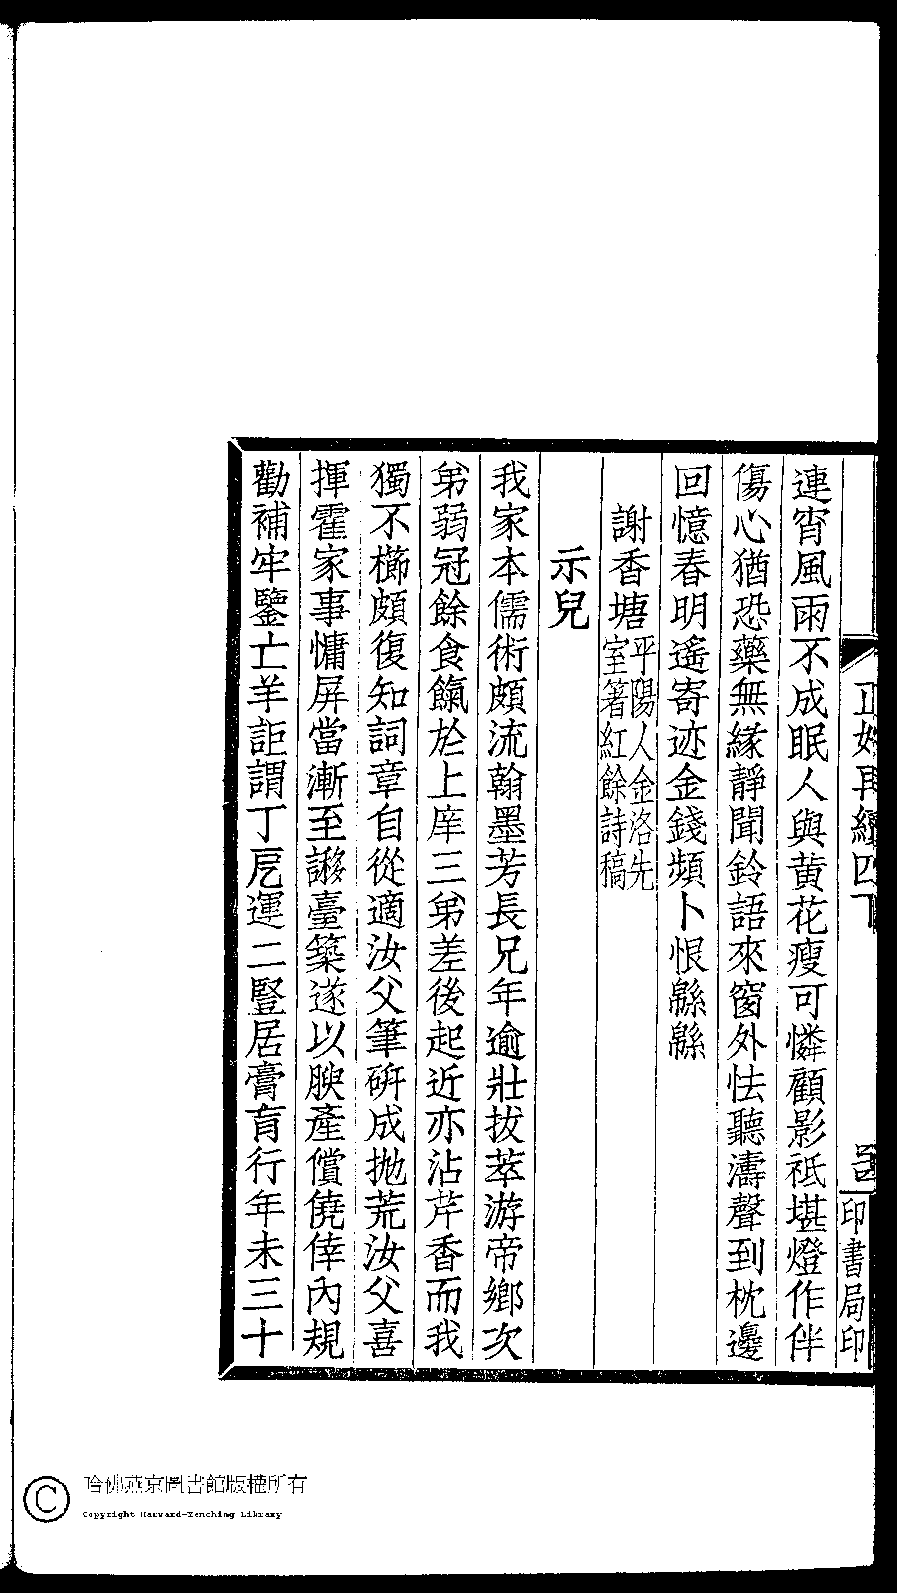 正始再續四下
印書局印
連宵風雨不成眠人與黄花瘦可憐顧影祇堪燈作伴
傷心猶恐藥無緣靜聞鈴語來窗外怯聽濤聲到枕邊
回憶春明遙寄迹金錢頻卜恨緜緜
謝香塘平陽人金洛先室箸紅餘詩稿
示兒
我家本儒術頗流翰墨芳長兄年逾壯拔萃游帝鄉次
弟弱冠餘食餼於上庠三弟差後起近亦沾芹香而我
獨不櫛頗復知詞章自從適汝父筆硏成拋荒汝父喜
揮霍家事慵屏當漸至謻臺築遂以腴產償僥倖內規
勸補牢鑒亡羊詎謂丁戹運二豎居膏肓行年未三十
哈佛燕京圖書館版權所有
Copyright Harvard-Yenching Library